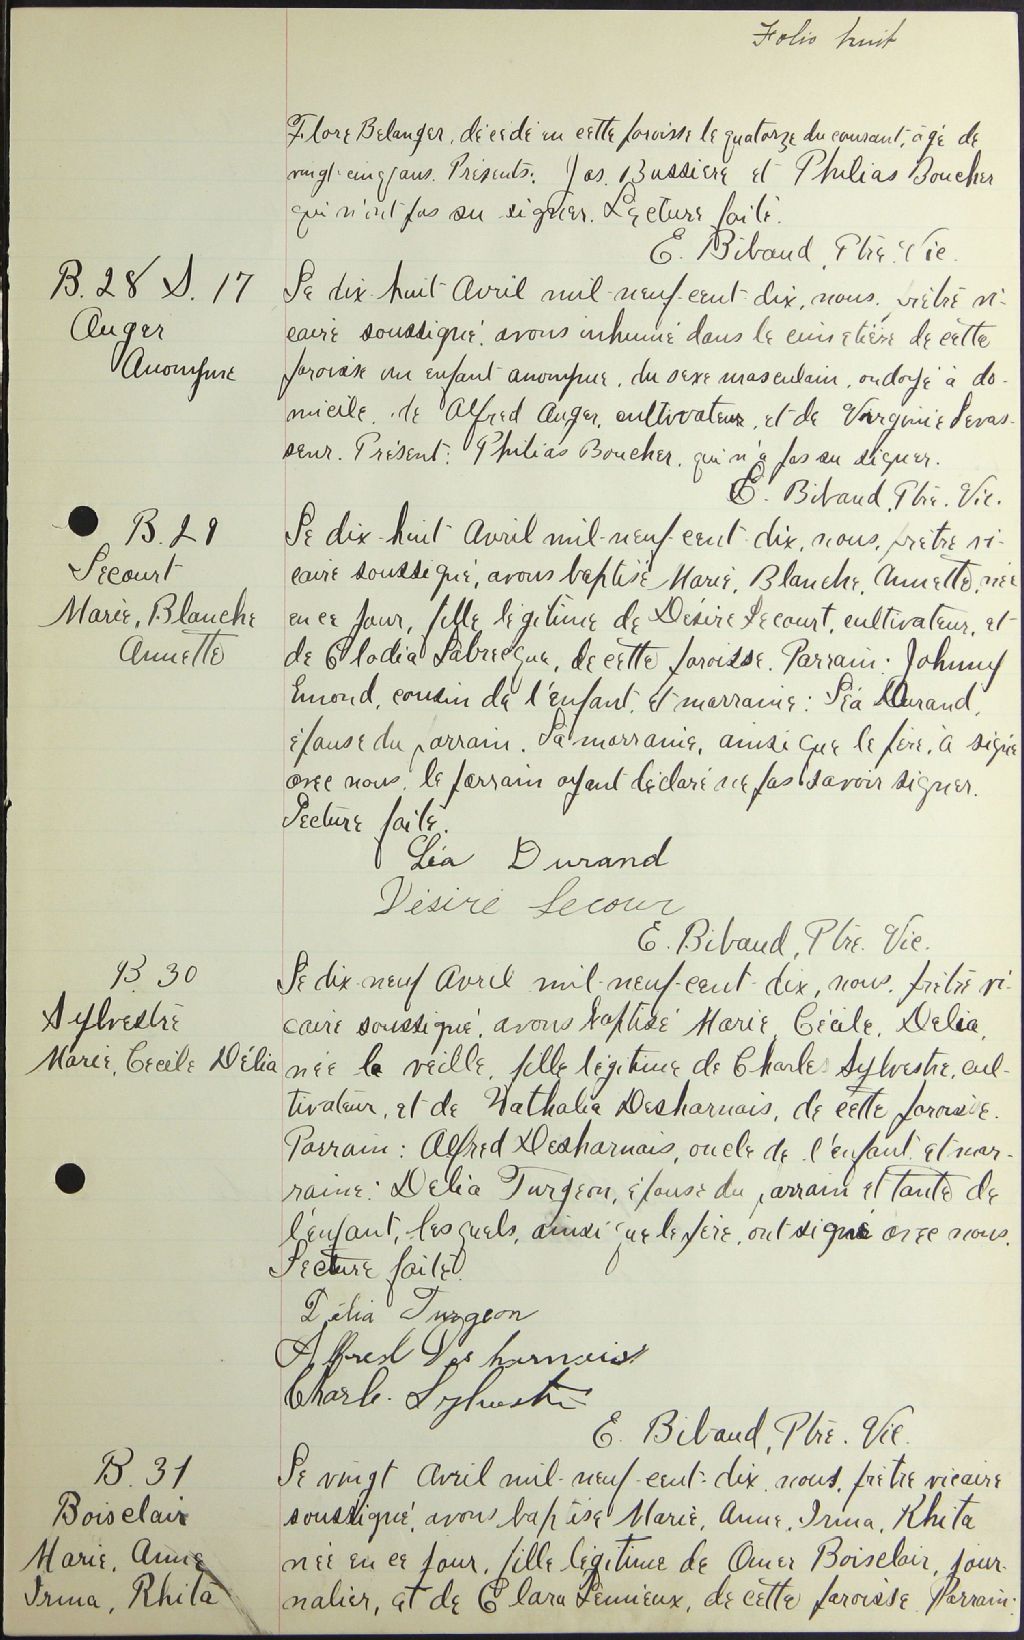 Folio huit
Flore Belanger, décédé en cette paroisse le quatorze du courant, âgé de
vingt-cinq ans. Présents: Jos. Bussiere et Philias Boucher
qui n'ont pas su signer. Lecture faite.
E. Bibaud, Ptre. Vic.
B. 28 S. 17
Auger
Anonyme
Le dix-huit Avril mil-neuf-cent-dix, nous, prêtre vi-
caire soussigné, avons inhumé dans le cimetière de cette
paroisse un enfant anonyme, du sexe masculain, ondoyé à do-
micile, de Alfred Auger, cultivateur, et de Virginie Levas-
seur. Présent: Philias Boucher, qui n'a pas su signer.
E. Bibaud, Ptre. Vic.
B. 29
Lecourt
Marie, Blanche
Annette
Le dix-huit Avril mil-neuf-cent-dix, nous, prêtre vi-
caire soussigné, avons baptisé Marie, Blanche, Annette, née
en ce jour, fille légitime de Désiré Lecourt, cultivateur, et
de Clodia Labrecque, de cette paroisse. Parrain: Johnny
Emond, cousin de l'enfant, et marraine: Léa Durand,
épouse du parrain. La marraine, ainsi que le père, a signé
avec nous, le parrain ayant déclaré ne pas savoir signer.
Lecture faite.
Léa Durand
Désiré Lecour
E. Bibaud, Ptre. Vic.
B. 30
Sylvestre
Marie, Cécile Délia
Le dix-neuf Avril mil-neuf-cent-dix, nous, prêtre vi-
caire soussigné, avons baptisé Marie, Cécile, Delia,
née la veille, fille légitime de Charles Sylvestre, cul-
tivateur, et de Nathalie Desharnais, de cette paroisse.
Parrain: Alfred Desharnais, oncle de l'enfant, et mar-
raine: Delia Turgeon, épouse du parrain et tante de
l'enfant, lesquels, ainsi que le père, ont signé avec nous.
Lecture faite.
Délia Turgeon
Alfred Desharnais
Charle. Sylvestre
E. Bibaud, Ptre. Vic.
B. 31
Boisclair
Marie, Anne
Irma, Rhita
Le vingt Avril mil-neuf-cent-dix, nous, prêtre vicaire
soussigné, avons baptisé Marie, Anne, Irma, Rhita
née en ce jour, fille légitime de Omer Boisclair, jour-
nalier, et de Clara Lemieux, de cette paroisse. Parrain: